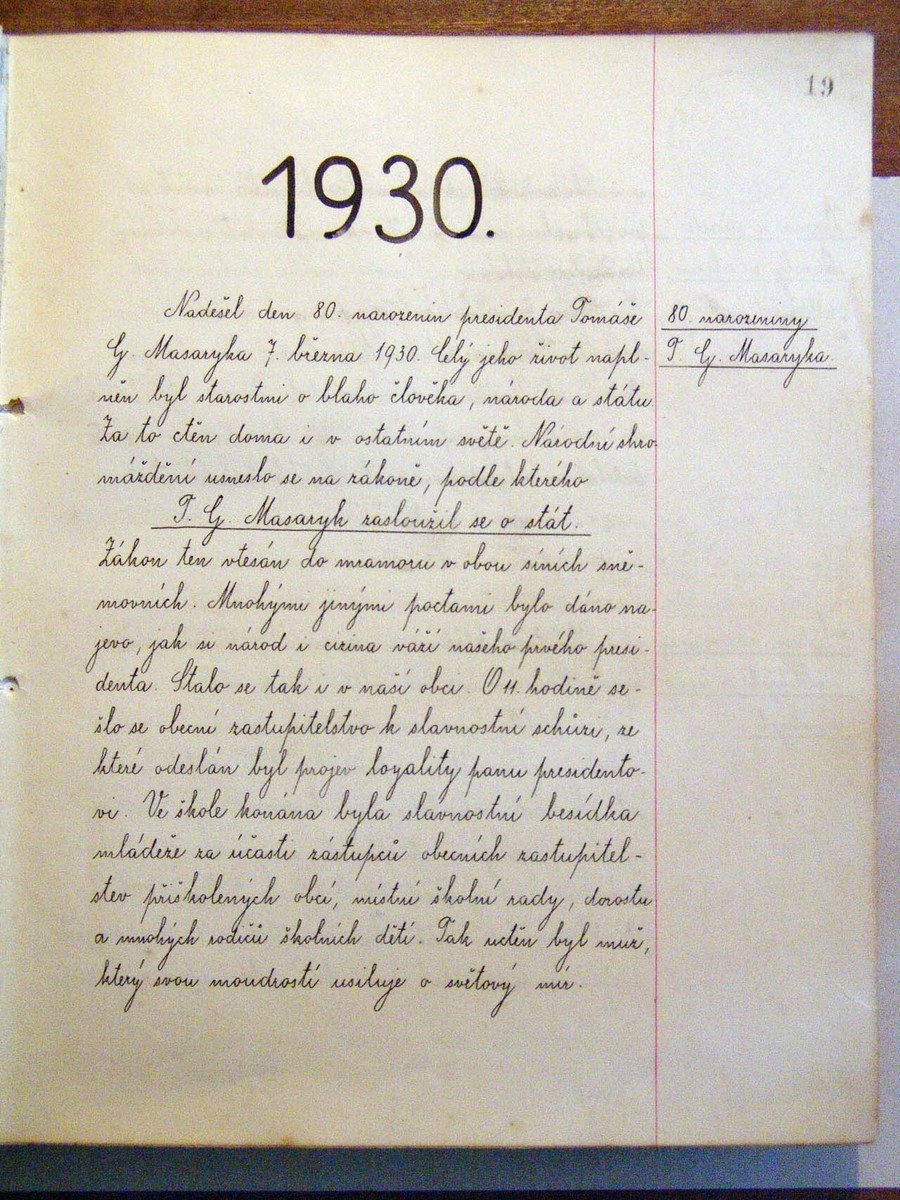 19
1930.
Nadešel den 80. narozenin presidenta Tomáše
G. Masaryka 7. března 1930. Celý jeho život napl-
něn byl starostmi o blaho člověka, národa a státu.
Za to ctěn doma i v ostatním světě. Národní shro-
máždění usneslo se na zákoně, podle kterého
T. G. Masaryk zasloužil se o stát.
Zákon ten vtesán do mramoru v obou síních sně-
movních. Mnohými jinými poctami bylo dáno na-
jevo, jak si národ i cizina váží našeho prvého presi-
denta. Stalo se tak i v naší obci. O 11. hodině se-
šlo se obecní zastupitelstvo k slavnostní schůzi, ze
které odeslán byl projev loyality panu presidento-
vi. Ve škole konána byla slavnostní besídka
mládeže za účasti zástupců obecních zastupitel-
stev přiškolených obcí, místní školní rady, dorostu
a mnohých rodičů školních dětí. Tak uctěn byl muž,
který svou moudrostí usiluje o světový mír.
80. narozeniny
T. G. Masaryka.